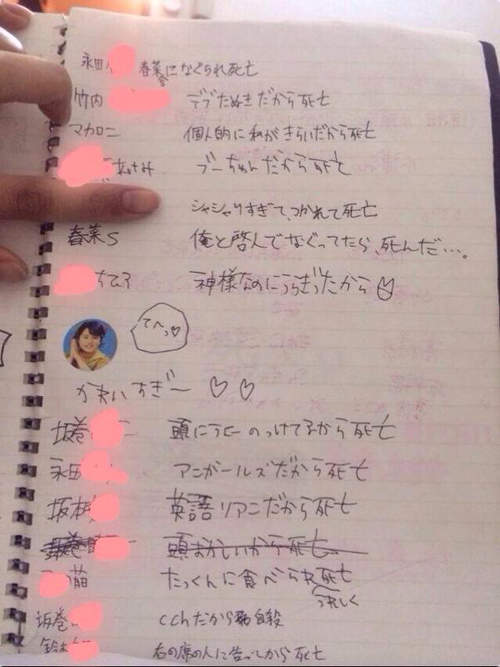 永田 春菜になぐられ死亡
竹内 デブたぬきだから死亡
マカロニ 個人的に私がきらいだから死亡
ブーちゃんだから死亡
シャシャりすぎて、つかれて死亡
春菜S 俺と啓人でなぐってたら、死んだ…。
神様なのにうらぎったから♡
てへっ♡
かわいすぎ〜 ♡ ♡
坂巻 頭にうにーのっけてるから死亡
永田 アンガールズだから死亡
坂本 英語 だから死亡
坂巻 頭おかしいから死亡
萌 たっくんに食べられ死亡
うれしく
坂巻 だから 自殺
鈴木 右の席の人に告ってから死亡